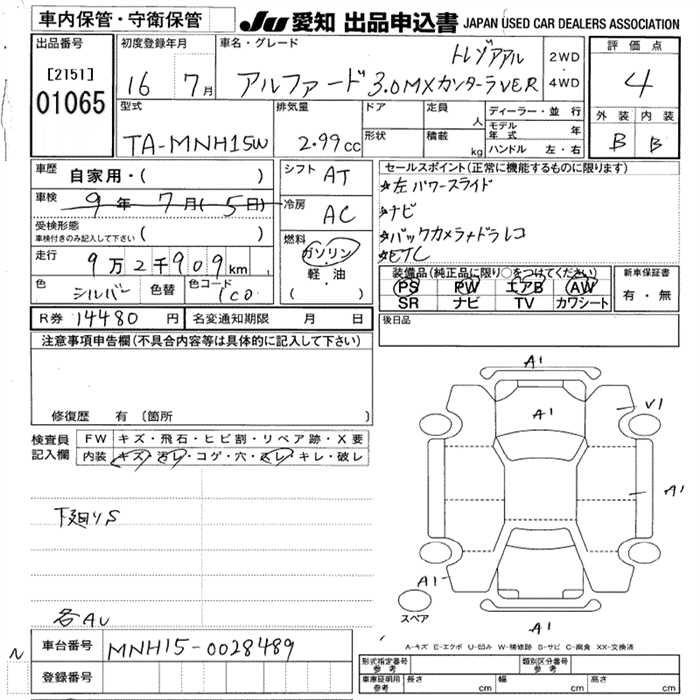 車内保管・守衛保管
JU 愛知 出品申込書 JAPAN USED CAR DEALERS ASSOCIATION
出品番号
[2151]
01065
初度登録年月
16 7月
車名・グレード
アルファード 3.0MX
VER
2WD
・
4WD
評価点
4
外装 内装
B B
型式
TA-MNH15W
排気量
2.99cc
ドア
形状
定員 人
積載 kg
ディーラー・並行
モデル年式 年
ハンドル 左・右
車歴
自家用・( )
車検
9年 7月(5日)
受検形態
車検付きのみ記入して下さい ( )
走行
9万2千909km
色
シルバー
色替
色コード
1C0
シフト AT
冷房 AC
燃料
ガソリン
・
軽・油
( ・ )
セールスポイント(正常に機能するものに限ります)
☆左パワースライド
☆ナビ
☆バックカメラ+ドラレコ
☆ETC
装備品(純正品に限り○をつけてください)
PS PW エアB AW
SR ナビ TV カワシート
新車保証書
有・無
R券 14480円
名変通知期限 月 日
後日品
注意事項申告欄(不具合内容等は具体的に記入して下さい)
修復歴 有(箇所 )
検査員
記入欄
FW キズ・飛石・ヒビ割・リペア跡・X要
内装 キズ・汚レ・コゲ・穴・スレ・キレ・破レ
下廻りS
各AU
A1
A1
V1
A1
A1
A1
スペア
A-キズ E-エクボ U-凹み W-補修跡 S-サビ C-腐食 XX-交換済
N
車台番号 MNH15-0028489
登録番号
形式指定番号
参考
類別区分番号
参考
車庫証明用
参考
長さ cm
幅 cm
高さ cm